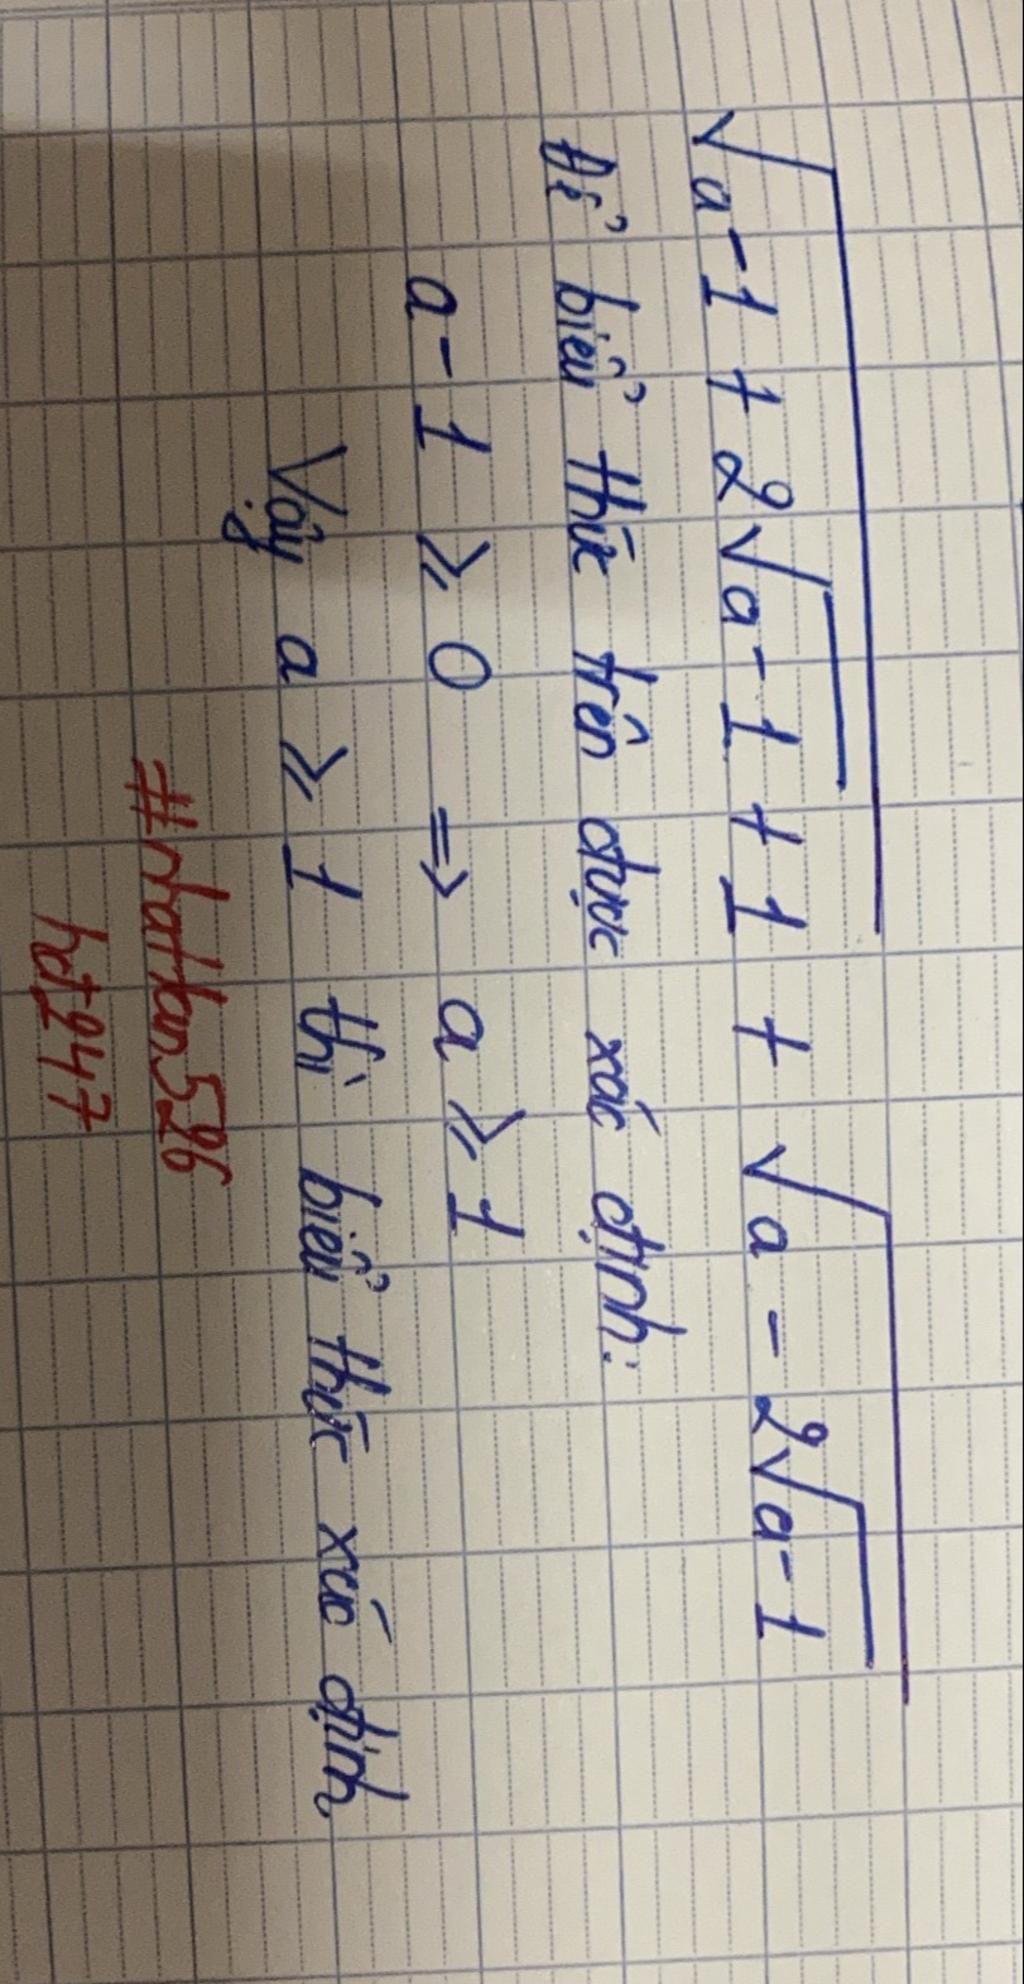 √(a-1+2√(a-1)+1) + √(a-2√(a-1))
Để biểu thức trên được xác định:
a-1 ⩾ 0 => a ⩾ 1
Vậy a ⩾ 1 thì biểu thức xác định
#nhattan526
hdt247